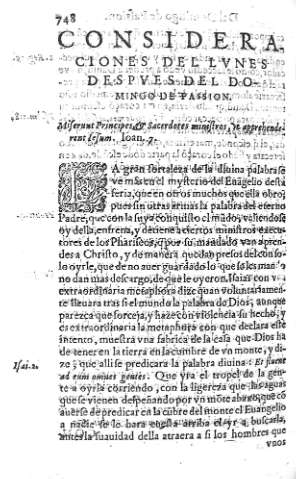 748
CONSIDERA
CIONES DEL LVNES
DESPVES DEL DO-
MINGO DE PASSION.
Miserunt Principes, & Sacerdotes ministros, vt apprehende
rent Iesum. Ioan. 7.
LA gran fortaleza de la diuina palabra se
ve mas en el mysterio del Euágelio desta
feria, que en otros muchos que ella obro,
pues sin otras armas la palabra del eterno
Padre, que con la suya conquisto el mũdo, valiendose
oy della, enfrena, y detiene a ciertos ministros execu
tores de los Phariseos, q̃ por su mandado van apren
der a Christo, y de manera quedan presos del con so-
lo oyrle, que de no auer guardado lo que los mas
no dan mas descargo, de que le oyeron. Isaias con v-
extraordinaria metaphora dize quan voluntariamen
te lleuara tras si el mundo la palabra de Dios, aunque
parezca que forceja, y haze con violencia su hecho, y
es extraordinaria la metaphora con que declara este
intento, muestra vna fabrica de la casa que Dios ha
de tener en la tierra en la cumbre de vn monte, y di-
ze, que alli se predicara la palabra diuina: Et fluent
Isai. 2.
ad eum omnes gentes. Que yra el tropel de la gen-
te a oyrla corriendo, con la ligereza que las aguas
que se vienen despeñando por vn môte abaxo, que cō
auerse de predicar en la cũbre del monte el Euangelio
a nadie se le hara cuesta arriba el yr a buscarla,
antes la suauidad della atraera a si los hombres que
vnos